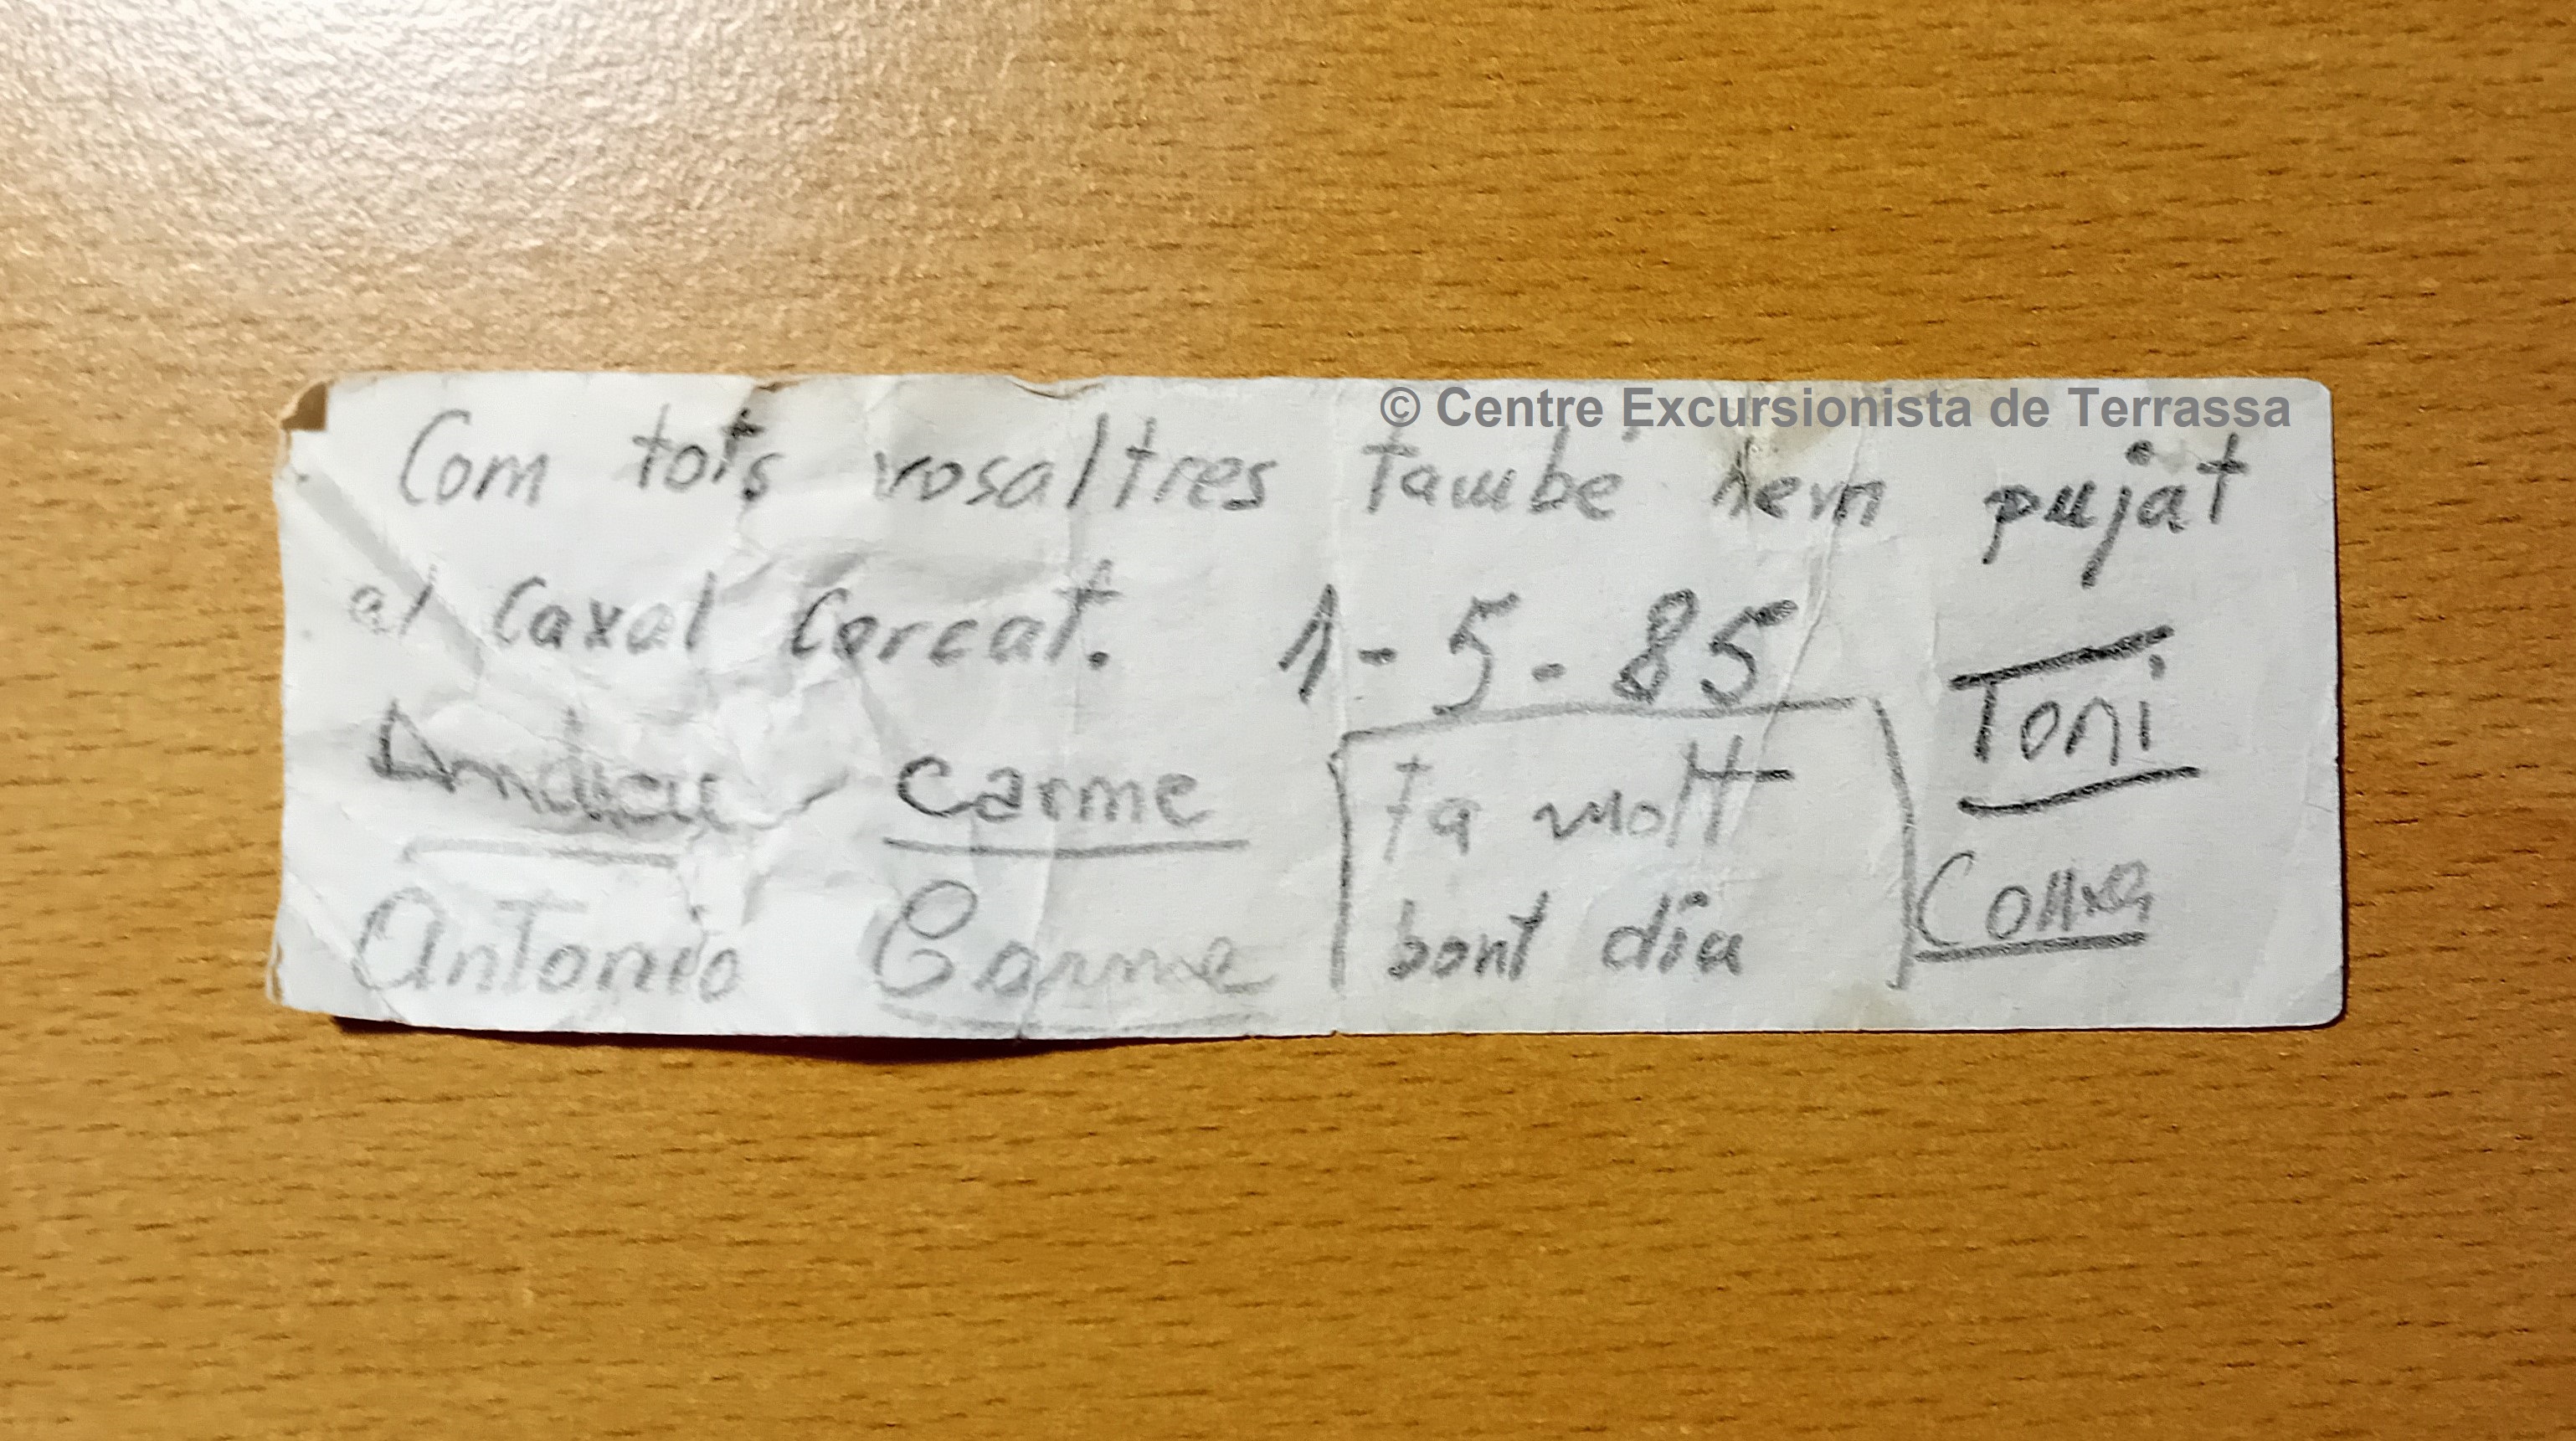 © Centre Excursionista de Terrassa
Com tots vosaltres també hem pujat
al Caxal Corcat. 1-5-85
Andreu Carme
Toni
Fa molt
bont dia
Antonio Carme
Conxa